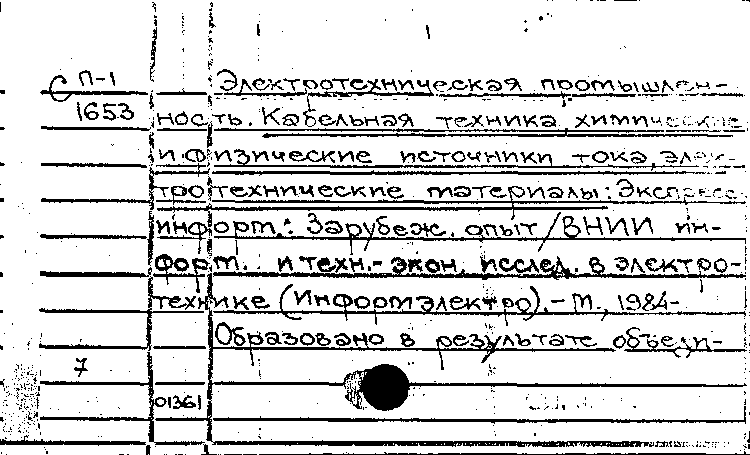 С П-1
1653
Электротехническая промышлен-
ность. Кабельная техника, химические
и физические источники тока, элек-
тротехнические материалы: Экспресс-
информ.: Зарубеж. опыт / ВНИИ ин-
форм. и техн.-экон. исслед. в электро-
технике (Информэлектро). - М., 1984-
Образовано в результате объеди-
7
01361